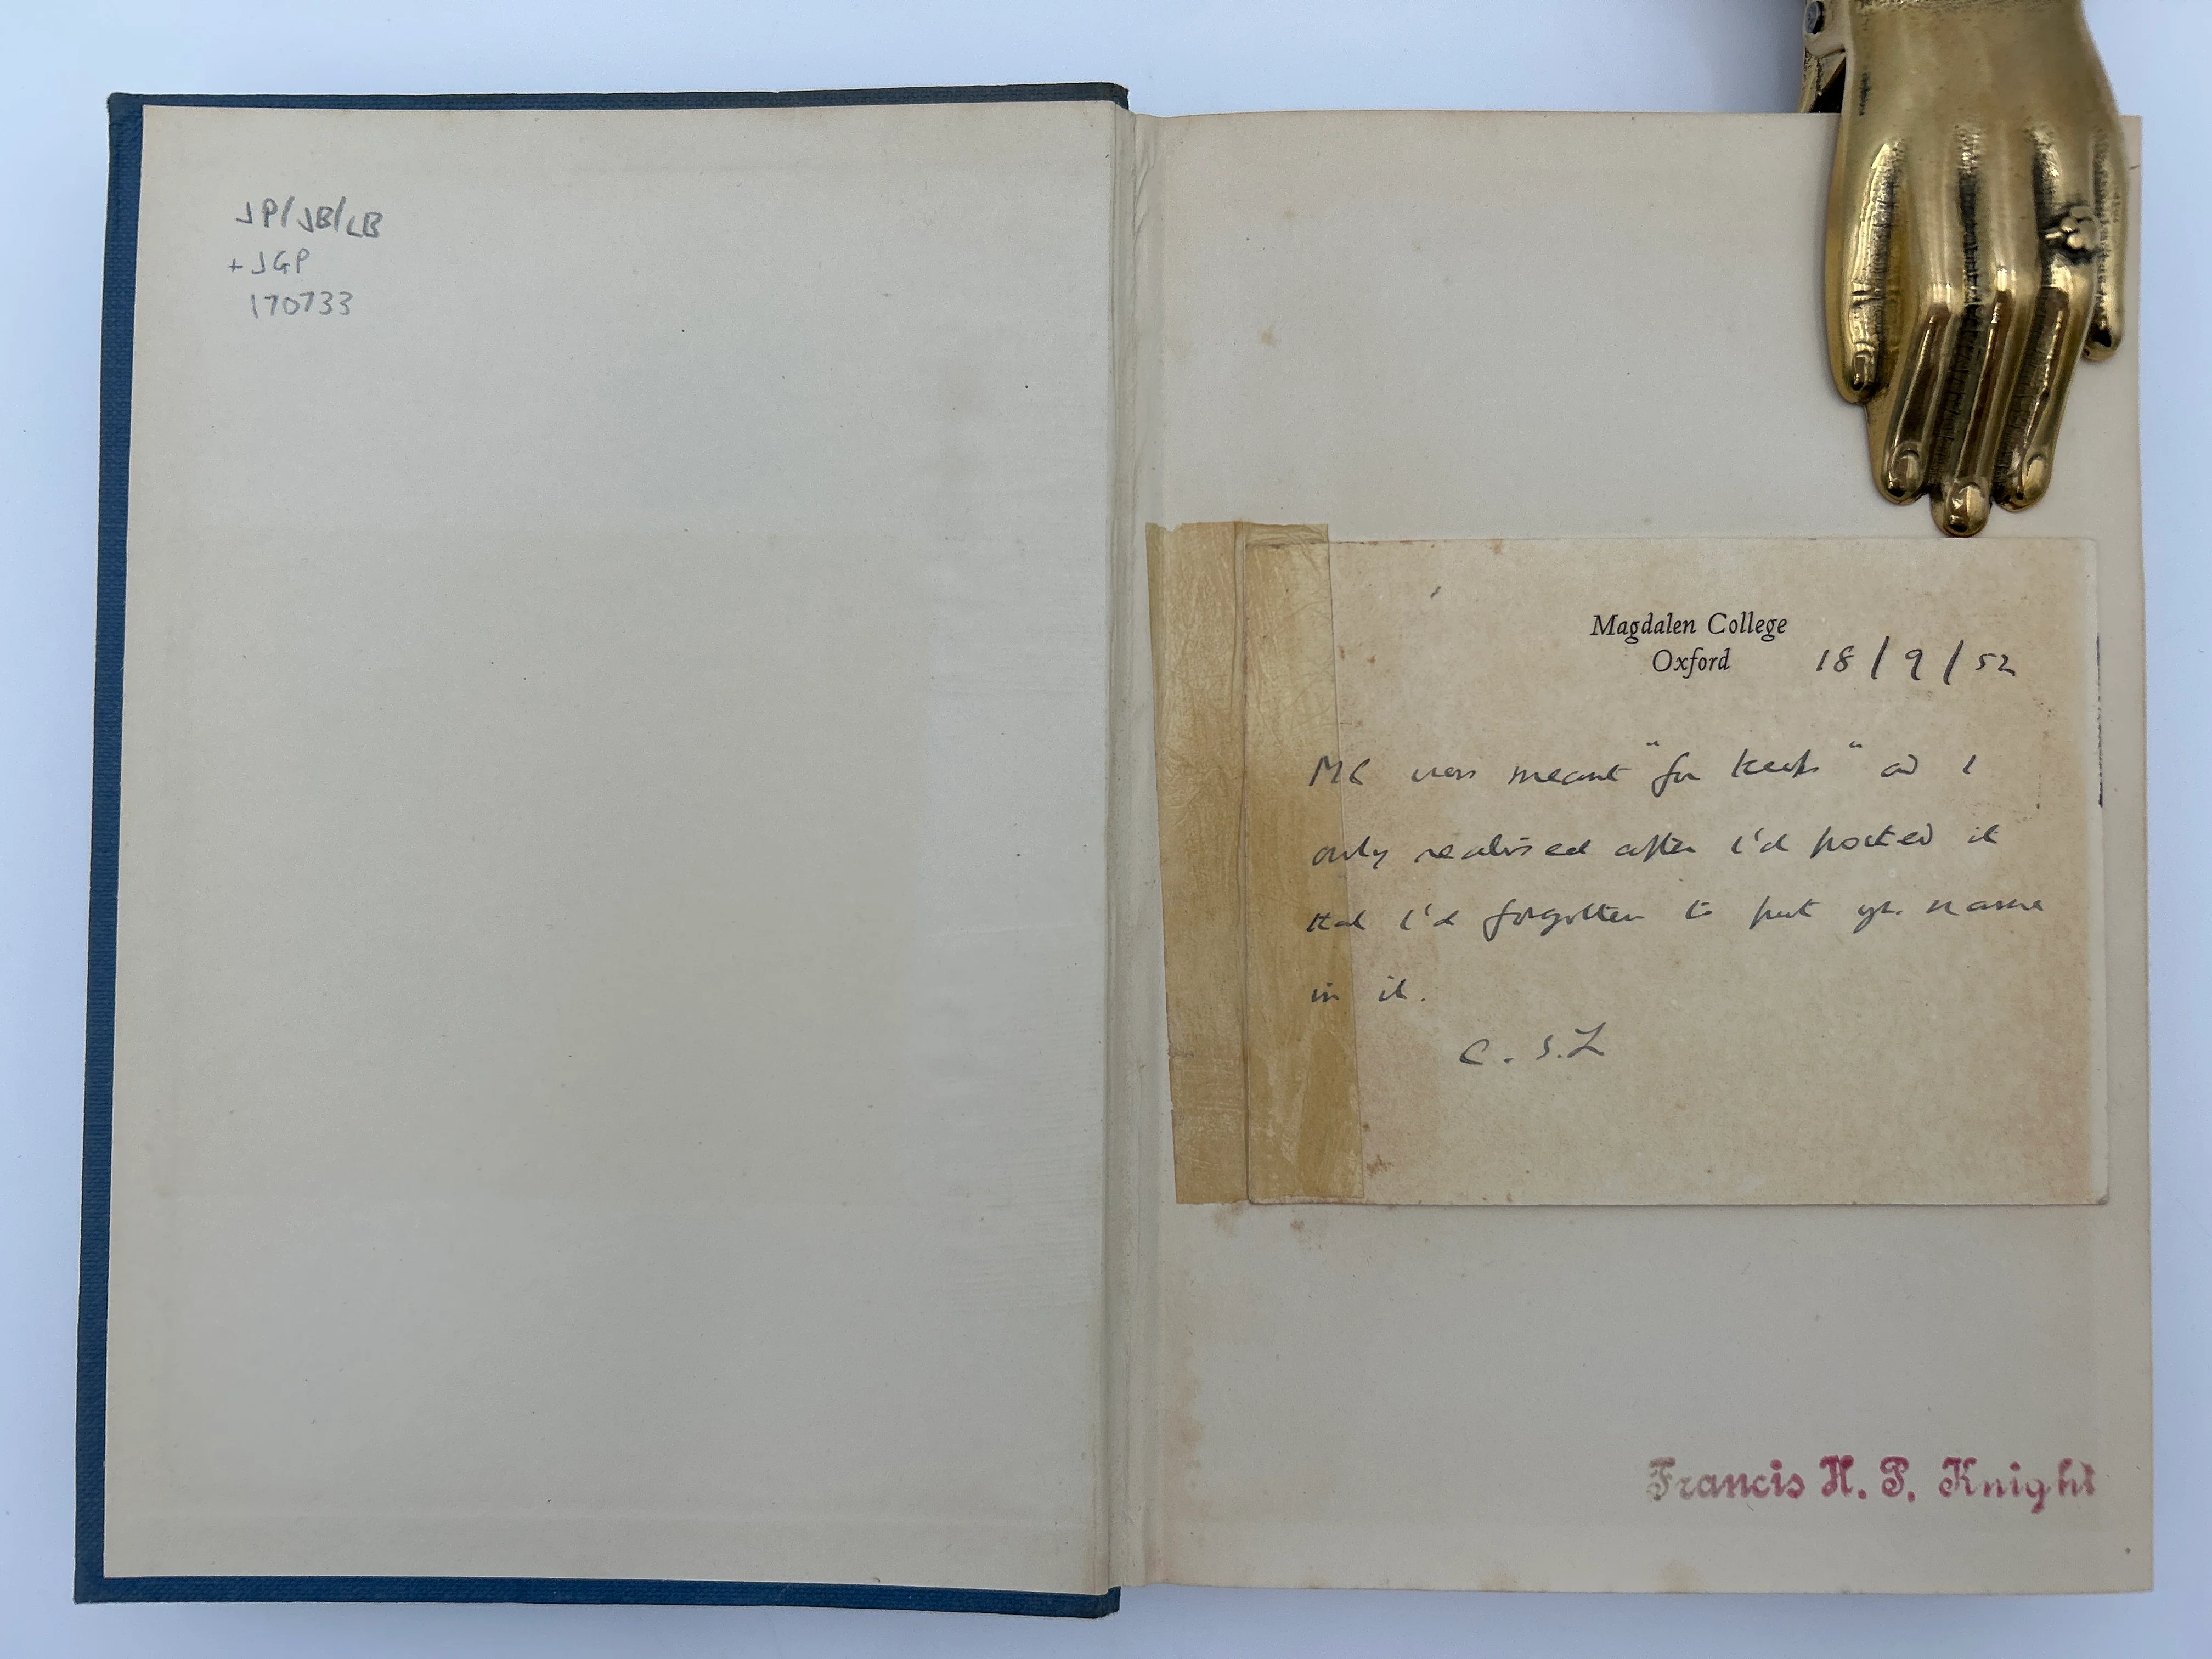 JP/JB/LB
+ JGP
170733
Magdalen College
Oxford 18/9/52
MC was meant "for keeps" and I
only realised after I'd posted it
that I'd forgotten to put yr. name
in it.
C.S.L
Francis H. P. Knight